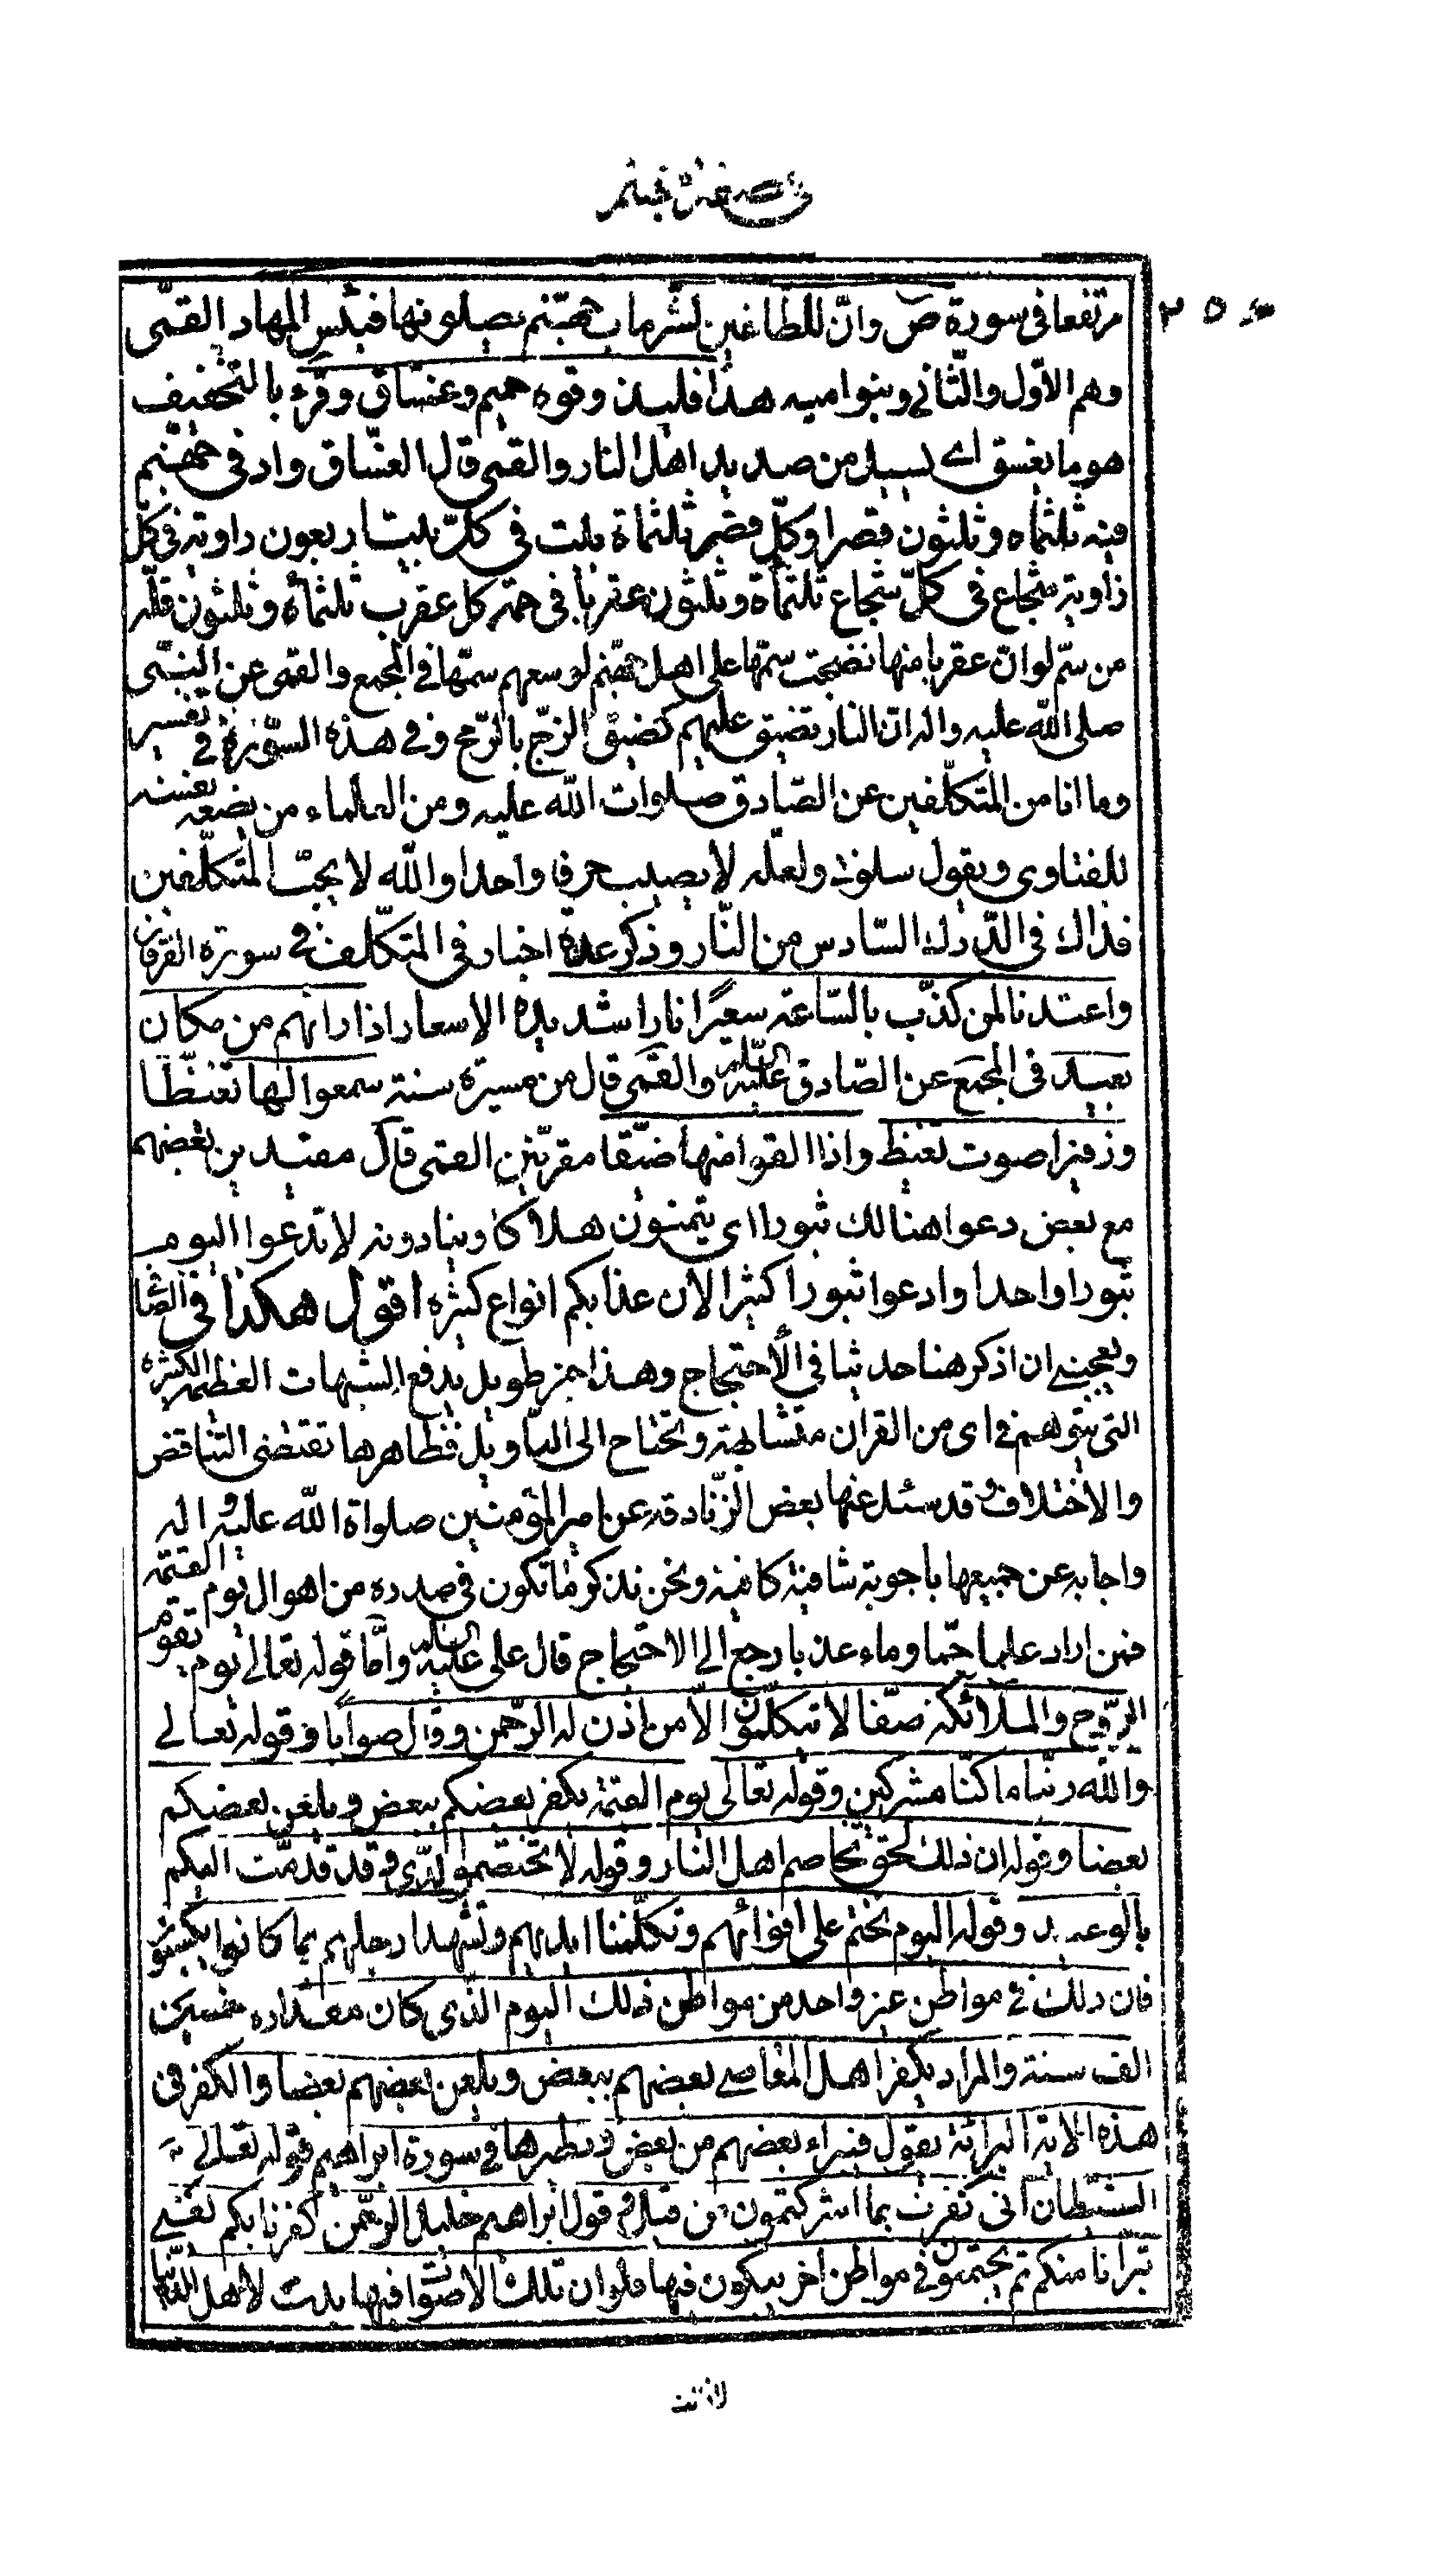 في صفة جهنم
۲۵۴
مرتفعا فی سورة ص وانّ للطاغین لشّر ماب جهنّم یصلونها فبئس المهاد القمّی
وهم الاوّل والثّانی وبنوا امیه هذا فلیذوقوه حمیم وغسّاق وقرء بالتخفیف
هو ما یغسق ای یسیل من صدید اهل النار والقمی قال الغسّاق واد فی جهنّم
فیه ثلثماه وثلثون قصرا وکلّ قصر ثلثماة بیت فی کلّ بیت اربعون زاویة فی کلّ
زاویة شجاع فی کلّ شجاع ثلثماة وثلثون عقربا فی حمة کل عقرب ثلثمأة وثلثون قلّه
من سّم لو انّ عقربا منها نضجت سمّها علی اهل جهنّم لوسعهم سمّها فی المجمع والقمی عن النبّی
صلی اللّه علیه واله انّ النار تضیق علیهم کضیق الزجّ بالرّمح وفی هذه السّورة فی تفسیر
وما انا من المتکلّفین عن الصّادق صلوات اللّه علیه ومن العلماء من یضع نفسه
للفتاوی ویقول سلونی ولعلّه لا یصیب حرفا واحدا واللّه لا یحبّ المتکلّفین
فذاك فی الدّرك السّادس من النّار وذکر عدّة اخبار فی المتکلّف فی سورة الفرقان
واعتدنا لمن کذّب بالسّاعة سعیرًا نارا شدیدة الاسعار اذا راتهم من مکان
بعید فی المجمع عن الصّادق علیه السّلام والقمّی قال من مسیرة سنة سمعوا لها تغیظّا
وزفیرا صوت تغیظ واذا القوا منها ضیّقا مقرّنین القمی قال مقیدین بعضهم
مع بعض دعوا هنالك ثبورا ای یتمنون هلاکا وینادونه لا تدعوا الیوم
ثبورا واحدا وادعوا ثبورا کثیرا لان عذابکم انواع کثیرة اقول هکذا فی الصّافی
ویعجبنی ان اذکر هنا حدیثا فی الأحتجاج وهذا خبر طویل یدفع الشبهات العظیمة الکثیرة
التی یتوهم فی ای من القران متشابهة وتحتاج الی التاویل فظاهرها تقتضی التناقض
والاختلاف وقد سئل عنها بعض الزّنادقه عن امیر المؤمنین صلواة اللّه علیه واله
واجابه عن جمیعها باجوبة شافیة کافیة ونحن نذکر ما تکون فی صدده من اهوال یوم القیمة
فمن اراد علما جّما وماء عذبا رجع الی الاحتجاج قال علی علیه السلام وأمّا قوله تعالی یوم یقوم
الرّوح والملائکة صفّا لا یتکلّمون الاّ من اذن له الرّحمن وقال صوابا وقوله تعالی
واللّه ربّنا ما کنّا مشرکین وقوله تعالی یوم القیمة یکفر بعضکم ببعض ویلعن بعضکم
بعضا وقوله ان ذلك لحقّ تخاصم اهل النار وقوله لا تختصموا لدیّ وقد قدمّت الیکم
بالوعید وقوله الیوم نختم علی افواههم وتکلّمنا ایدیهم وتشهد ارجلهم بما کانوا یکسبون
فان ذلك فی مواطن غیر واحد من مواطن ذلك الیوم الّذی کان مقداره خمسین
الف سنة والمراد یکفر اهل المعاصی بعضهم ببعض ویلعن بعضهم بعضا والکفر فی
هذه الایة البرائة یقول فیبراء بعضهم من بعض ونظیرها فی سورة ابراهیم قوله تعالی
الشیطان انی کفرت بما اشرکتمون من قبل وقول ابراهیم خلیل الرحمن کفرنا بکم یعنی
تبرّأنا منکم ثم یجتمعون فی مواطن اخر یبکون فیها فلو ان تلك الاصوات فیها بدت لاهل الدّنیا